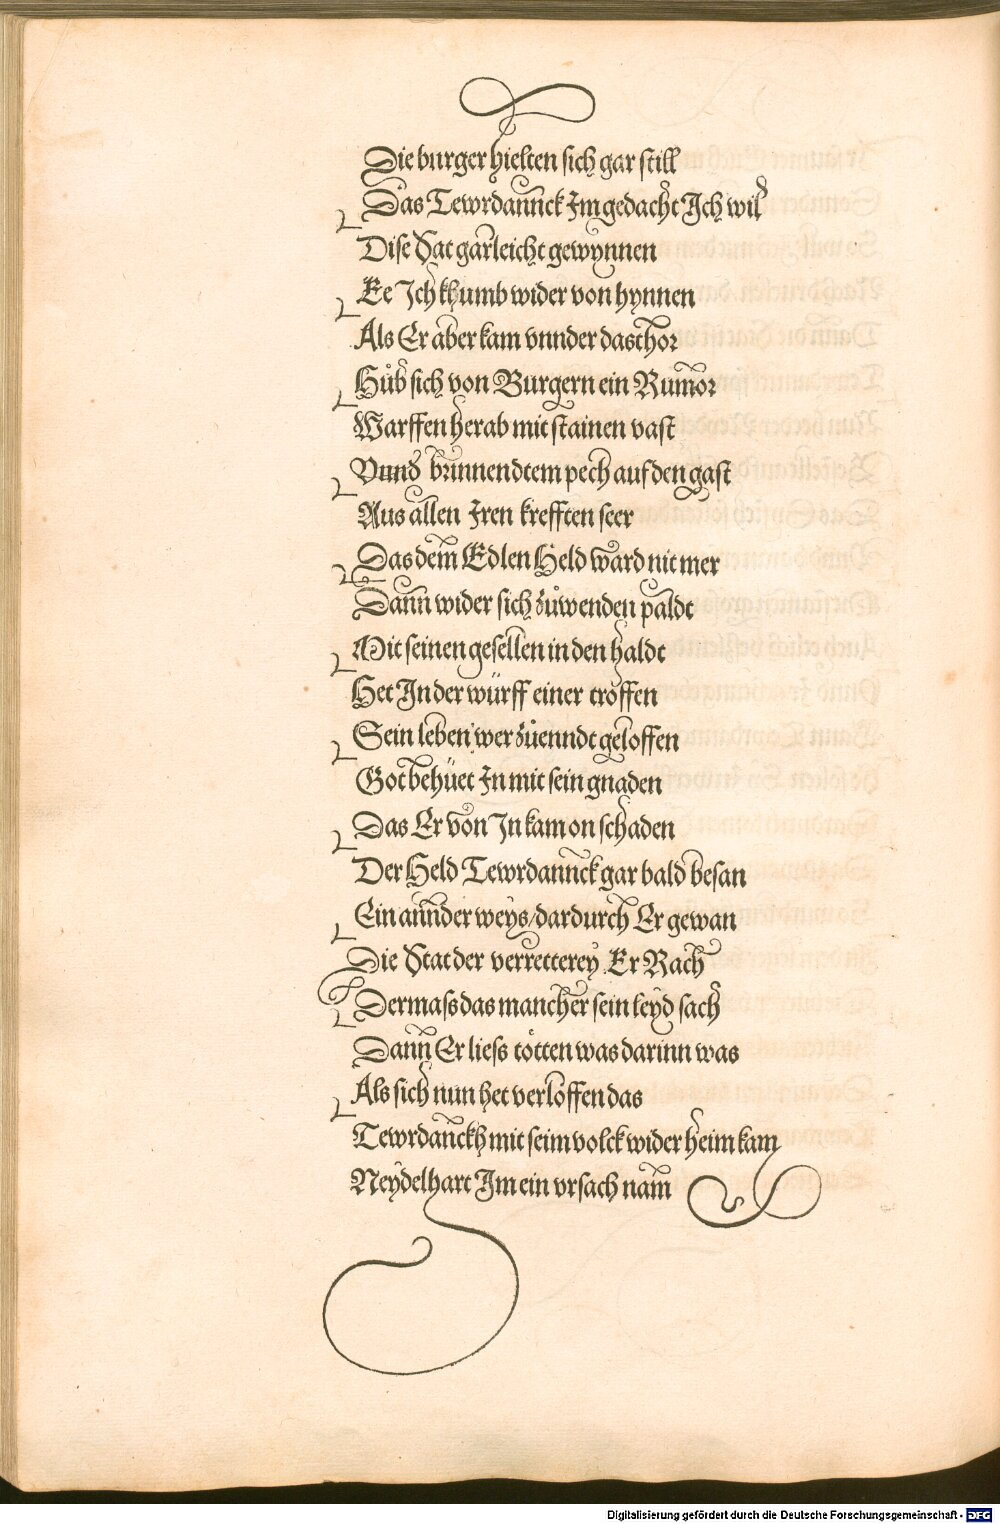 Die burger hielten sich gar still
Das Tewrdannck Im gedacht Ich wil
Dise Stat gar leicht gewynnen
Ee Ich khumb wider von hynnen
Als Er aber kam vnnder das thor
Hůb sich von Burgern ein Rumor
Warffen herab mit stainen vast
Vnnd brinnendtem pech auf den gast
Aus allen Iren krefften seer
Das dem Edlen Held ward nit mer
Dann wider sich zůwenden paldt
Mit seinen gesellen in den haldt
Het In der würff einer troffen
Sein leben wer zůenndt geloffen
Got behüet In mit sein gnaden
Das Er von In kam on schaden
Der Held Tewrdannck gar bald besan
Ein annder weys/dardurch Er gewan
Die Stat der verretterey Er Rach
Dermass das mancher sein leyd sach
Dann Er liess tötten was darinn was
Als sich nun het verloffen das
Tewrdannckh mit seim volck wider heim kam
Neydelhart Im ein vrsach nam
Digitalisierung gefördert durch die Deutsche Forschungsgemeinschaft - DFG